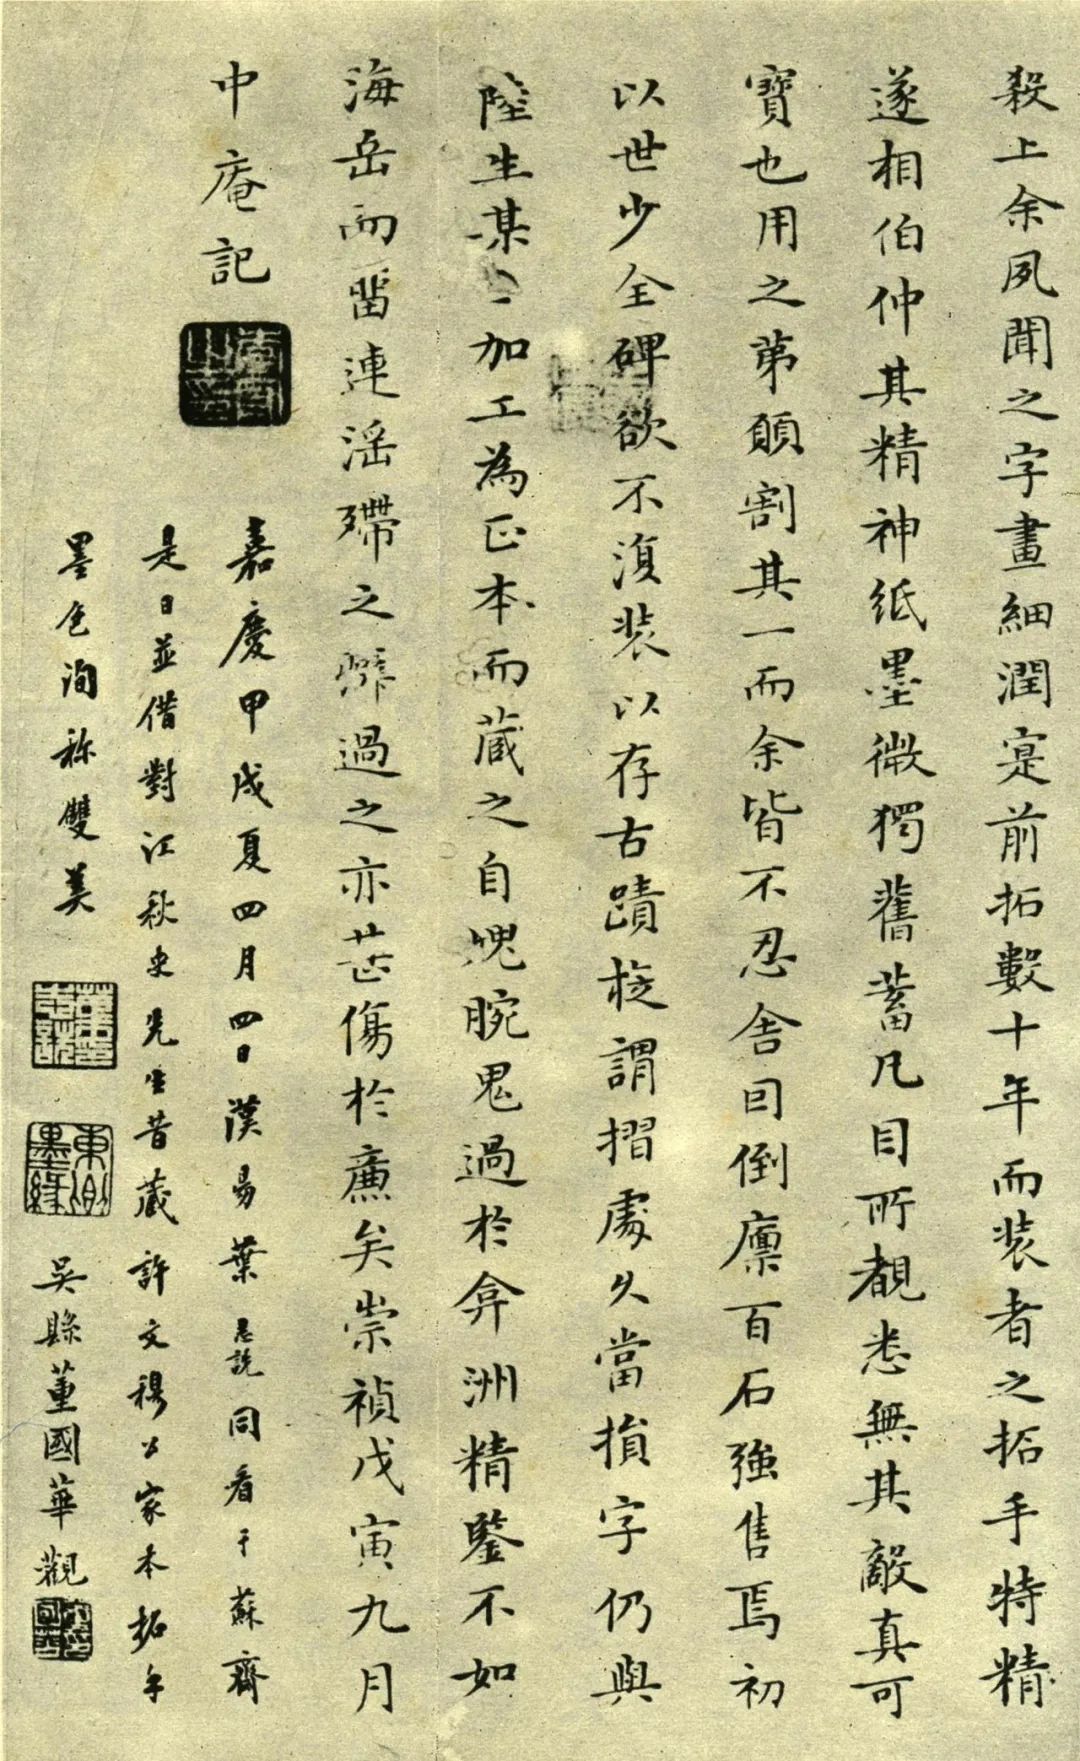 殺上余夙聞之字畫細潤寔前拓數十年而装者之拓手特精
遂相伯仲其精神紙墨微獨舊蓄凡目所覩悉無其敵真可
寶也用之第願割其一而余皆不忍舍囙倒廪百石強售焉初
以世少全碑欲不復装以存古蹟㧡謂摺處久當損字仍與
陸生某〻加工為正本而蔵之自媿腕鬼過於弇洲精鑒不如
海岳而畱連滛殢之癖過之亦甚傷於廉矣崇禎戊寅九月
中庵記
嘉慶甲戌夏四月四日漢昜葉志詵同看于蘇齋
是日並借對江秋史先生昔蔵許文穆公家本拓手
墨色洵称雙美
吳縣董國華觀